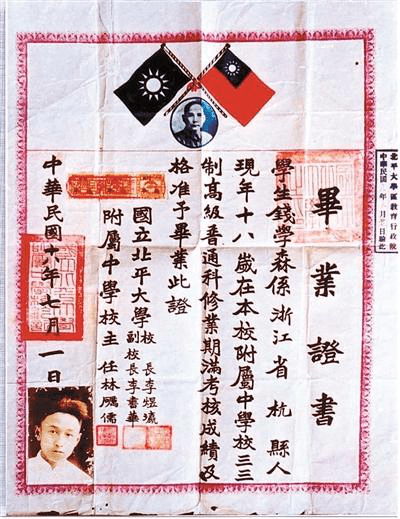 北平大學區教育行政院
中華民國 年 月 日驗訖
畢業證書
學生錢學森係浙江省杭縣人
現年十八歲在本校附屬中學校三三
制高級普通科修業期滿考核成績及
格准予畢業此證
國立北平大學校長李煜瀛
副校長李書華
附屬中學校主任林礪儒
中華民國十八年七月一日